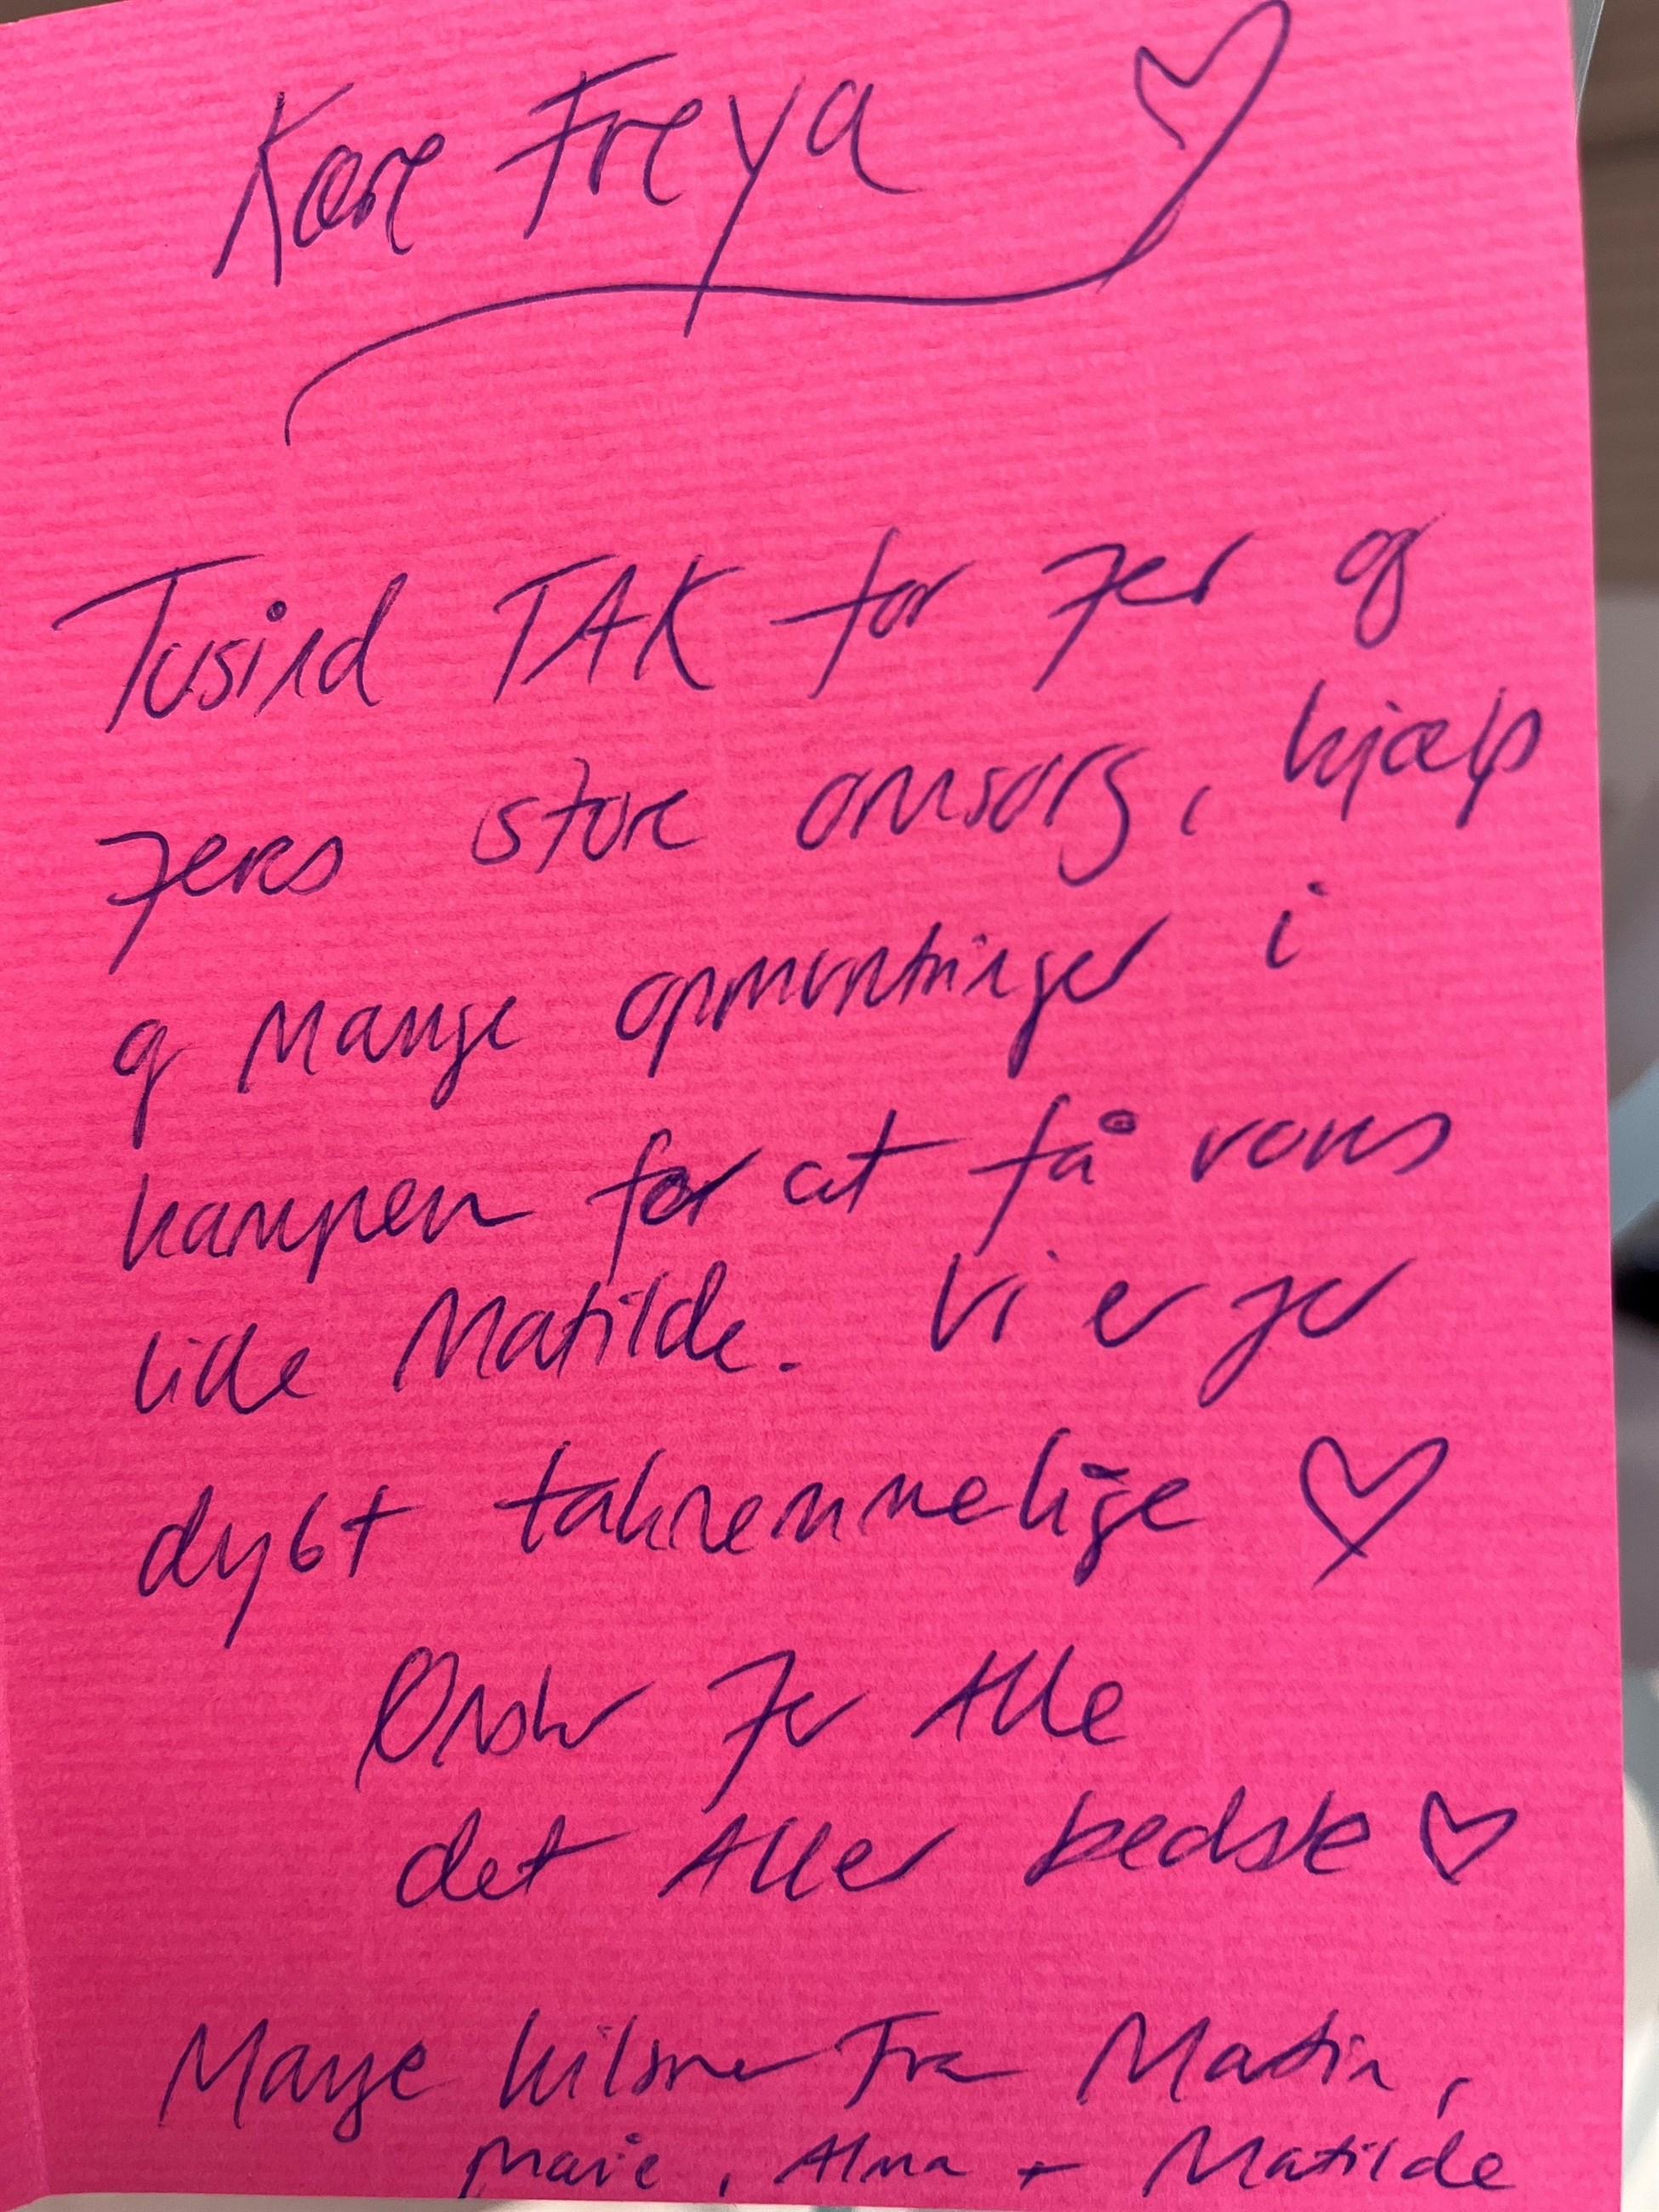 Kære Freya
Tusind TAK for Jer og
Jeres store omsorg, hjælp
og Mange opmuntringer i
kampen for at få vores
lille Matilde. Vi er jer
dybt taknemmelige ♡
Ønsker Jer Alle
det Aller bedste ♡
Mange hilsner Fra Martin,
Marie, Alma + Matilde